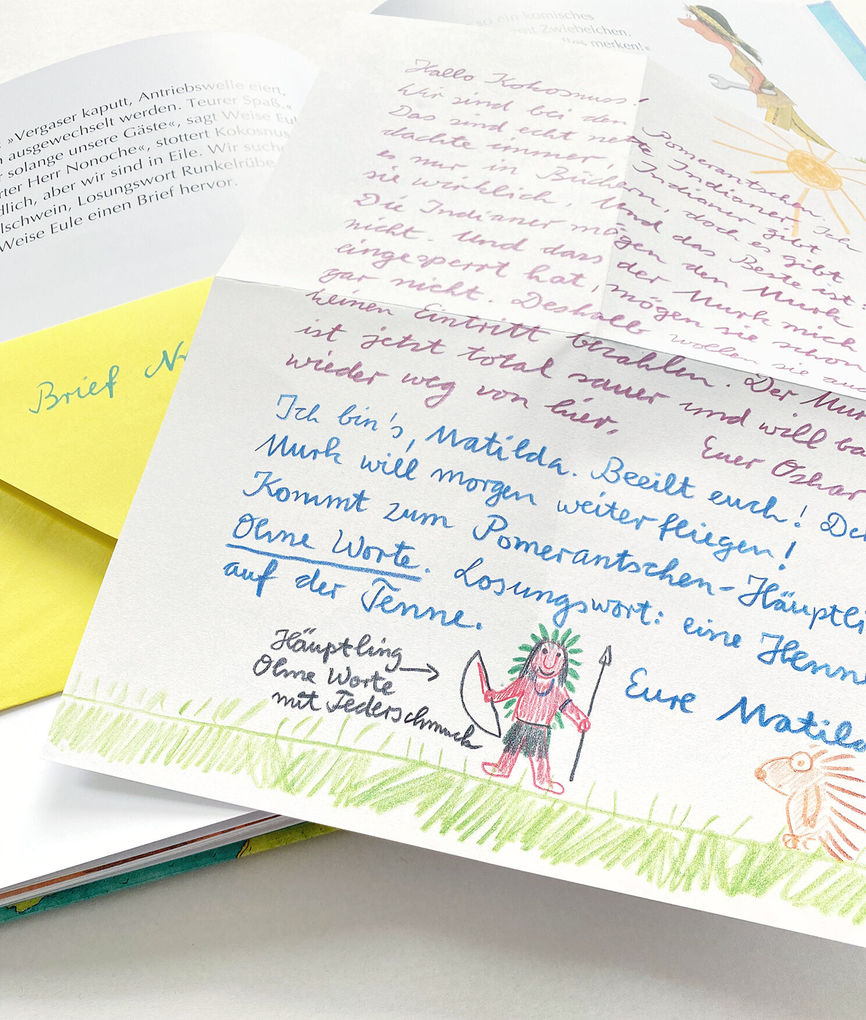 so ein komisches
Zwiebelchen.
merken!«
»Vergaser kaputt, Antriebswelle eiern,
ausgewechselt werden. Teurer Spaß.«
solange unsere Gäste«, sagt Weise Eul
rter Herr Nonoche«, stottert Kokosnus
dlich, aber wir sind in Eile. Wir suche
lschwein, Losungswort Runkelrübe
Weise Eule einen Brief hervor.
Brief N
Hallo Kokosnuss!
Wir sind bei den Pomerantschen
Das sind echt nette Indianer. Ich
dachte immer, Indianer gibt
es nur in Büchern, doch es gibt
sie wirklich. Und das Beste ist
Die Indianer mögen den Murk
nicht. Und dass der Murk mich
eingesperrt hat, mögen sie schon
gar nicht. Deshalb wollen sie au
keinen Eintritt bezahlen. Der Mur
ist jetzt total sauer und will ba
wieder weg von hier.
Euer Oskar
Ich bin's, Matilda. Beeilt euch! Der
Murk will morgen weiterfliegen!
Kommt zum Pomerantschen-Häuptli
Ohne Worte. Losungswort: eine Henne
auf der Tenne.
Eure Matilda
Häuptling
Ohne Worte
mit Federschmuck